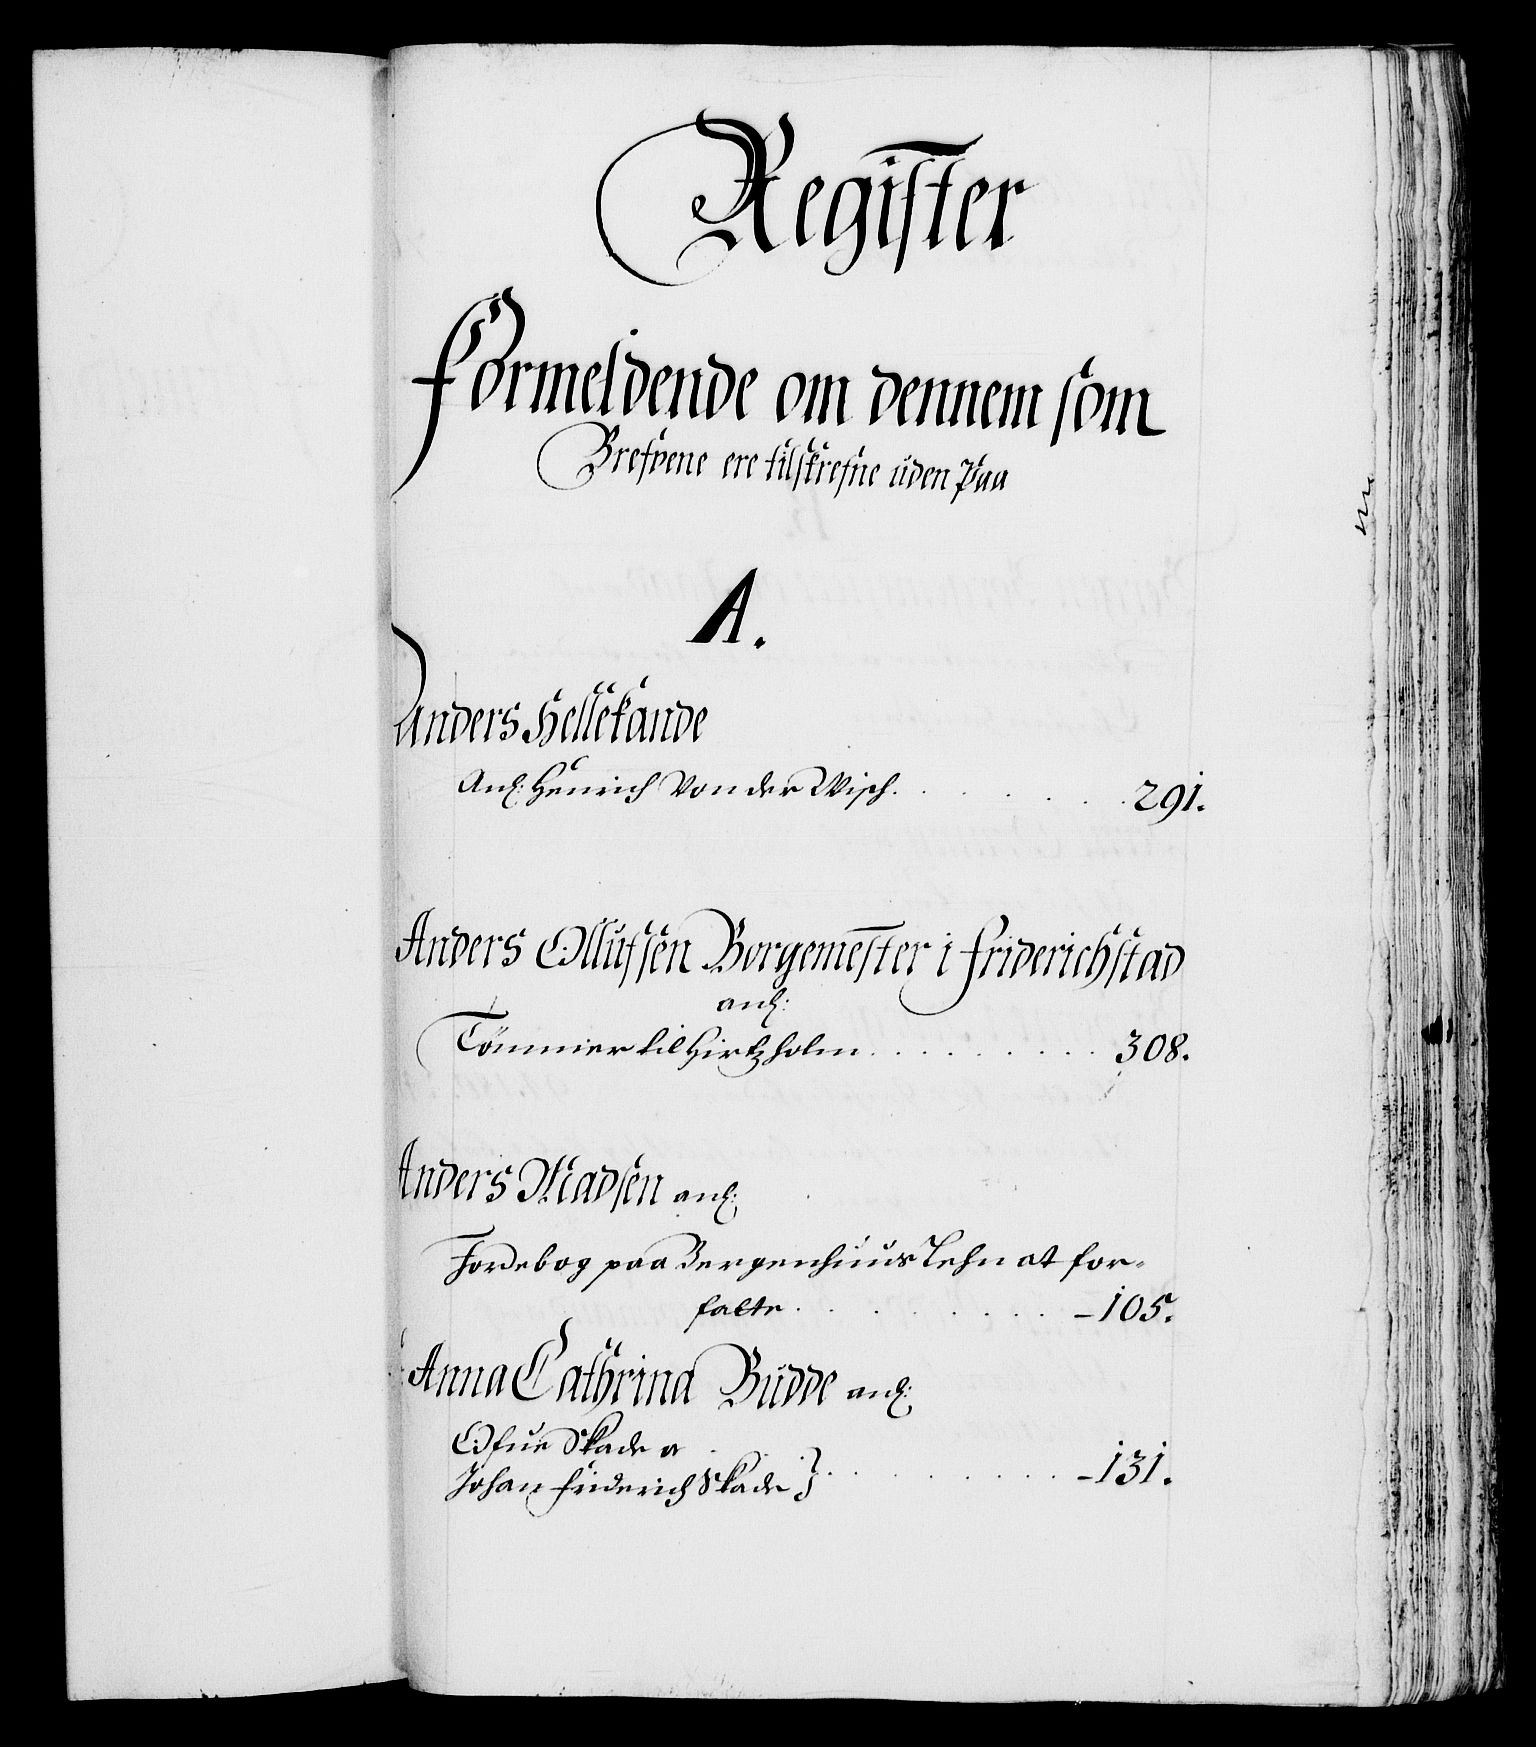 Register
Formeldende om dennem som
Brefvene ere tilskrefne uden Paa
A.
Anders Hellekande
Anl: Henrich Von der Wisch. . . . . . 291.
Anders Ollufsen Borgemester i Friderichstad
anl:
Tømmer til Hirtzholm . . . . . . . . 308.
Anders Madsen anl:
Jordebog paa Bergenhuus Lehn at for-
fatte . . . . . . . . -105.
Anna Cathrina Budde anl:
Ofue Skade a
Johan Friderich Skade } . . . . . . . -131.